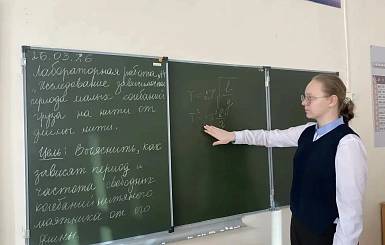 26.03.26
Лабораторная работа
"Исследование зависимости
периода малых колебаний
груза на нити от
длины нити.
Цель: Выяснить, как
зависят период и
частота свободных
колебаний нитяного
маятника от его
длины
T=2π√